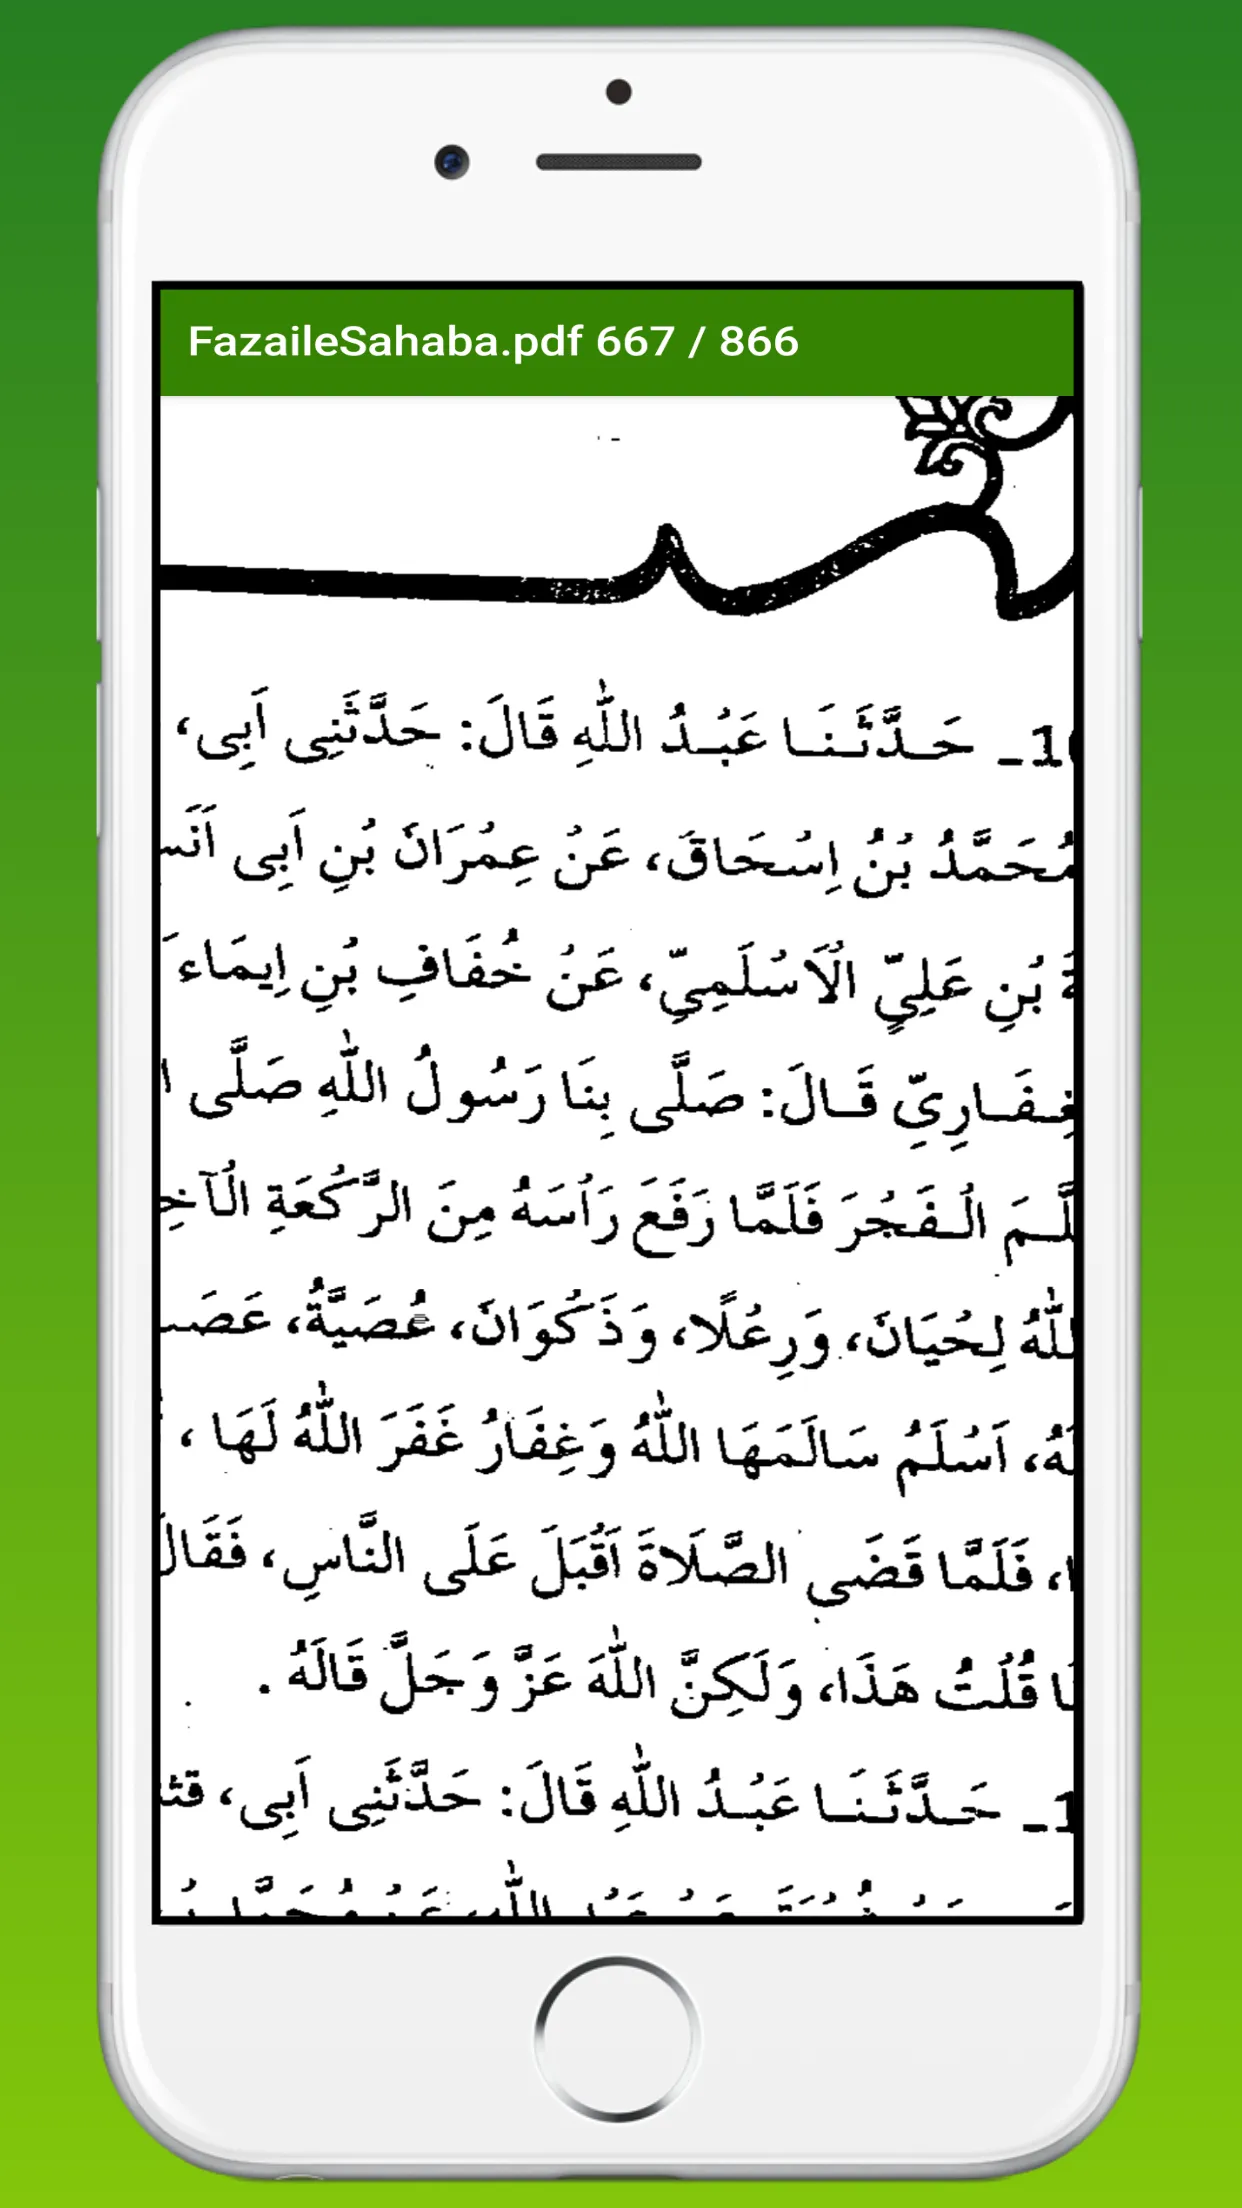 FazaileSahaba.pdf 667 / 866
حَدَّثَنَا عَبْدُ اللّٰهِ قَالَ: حَدَّثَنِى اَبِى،
مُحَمَّدُ بْنُ اِسْحَاقَ، عَنْ عِمْرَانَ بْنِ اَبِى
بْنِ عَلِيٍّ الْاَسْلَمِيِّ، عَنْ خُفَافِ بْنِ اِيمَاءَ
قَالَ: صَلَّى بِنَا رَسُولُ اللّٰهِ صَلَّى
الْفَجْرَ فَلَمَّا رَفَعَ رَاْسَهُ مِنَ الرَّكْعَةِ
لِحْيَانَ، وَرِعْلًا، وَذَكْوَانَ، عُصَيَّةُ،
اَسْلَمُ سَالَمَهَا اللّٰهُ وَغِفَارُ غَفَرَ اللّٰهُ لَهَا ،
فَلَمَّا قَضَى الصَّلَاةَ اَقْبَلَ عَلَى النَّاسِ، فَقَالَ
قُلْتُ هَذَا، وَلَكِنَّ اللّٰهَ عَزَّ وَجَلَّ قَالَهُ .
حَدَّثَنَا عَبْدُ اللّٰهِ قَالَ: حَدَّثَنِى اَبِى،